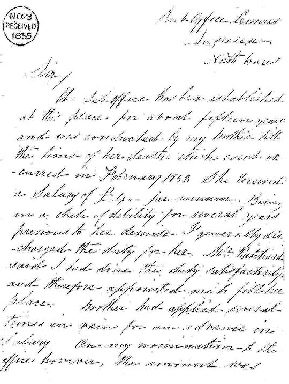 NOV 3
RECEIVED
1855
Sub Office
North
Sir,
A Sub office has been established
at this place for about fifteen years
and was conducted by my Mother till
the time of her death which event oc-
curred in February 1853. She received
a Salary of per annum. Being
in a state of debility for several years
previous to her decease I generally dis-
charged the duty for her. The
said I had done the duty satisfactorily
and therefore appointed me to fill her
place. Mother had applied several
times in vain for an advance in
Salary On my nomination to the
office however, the amount was